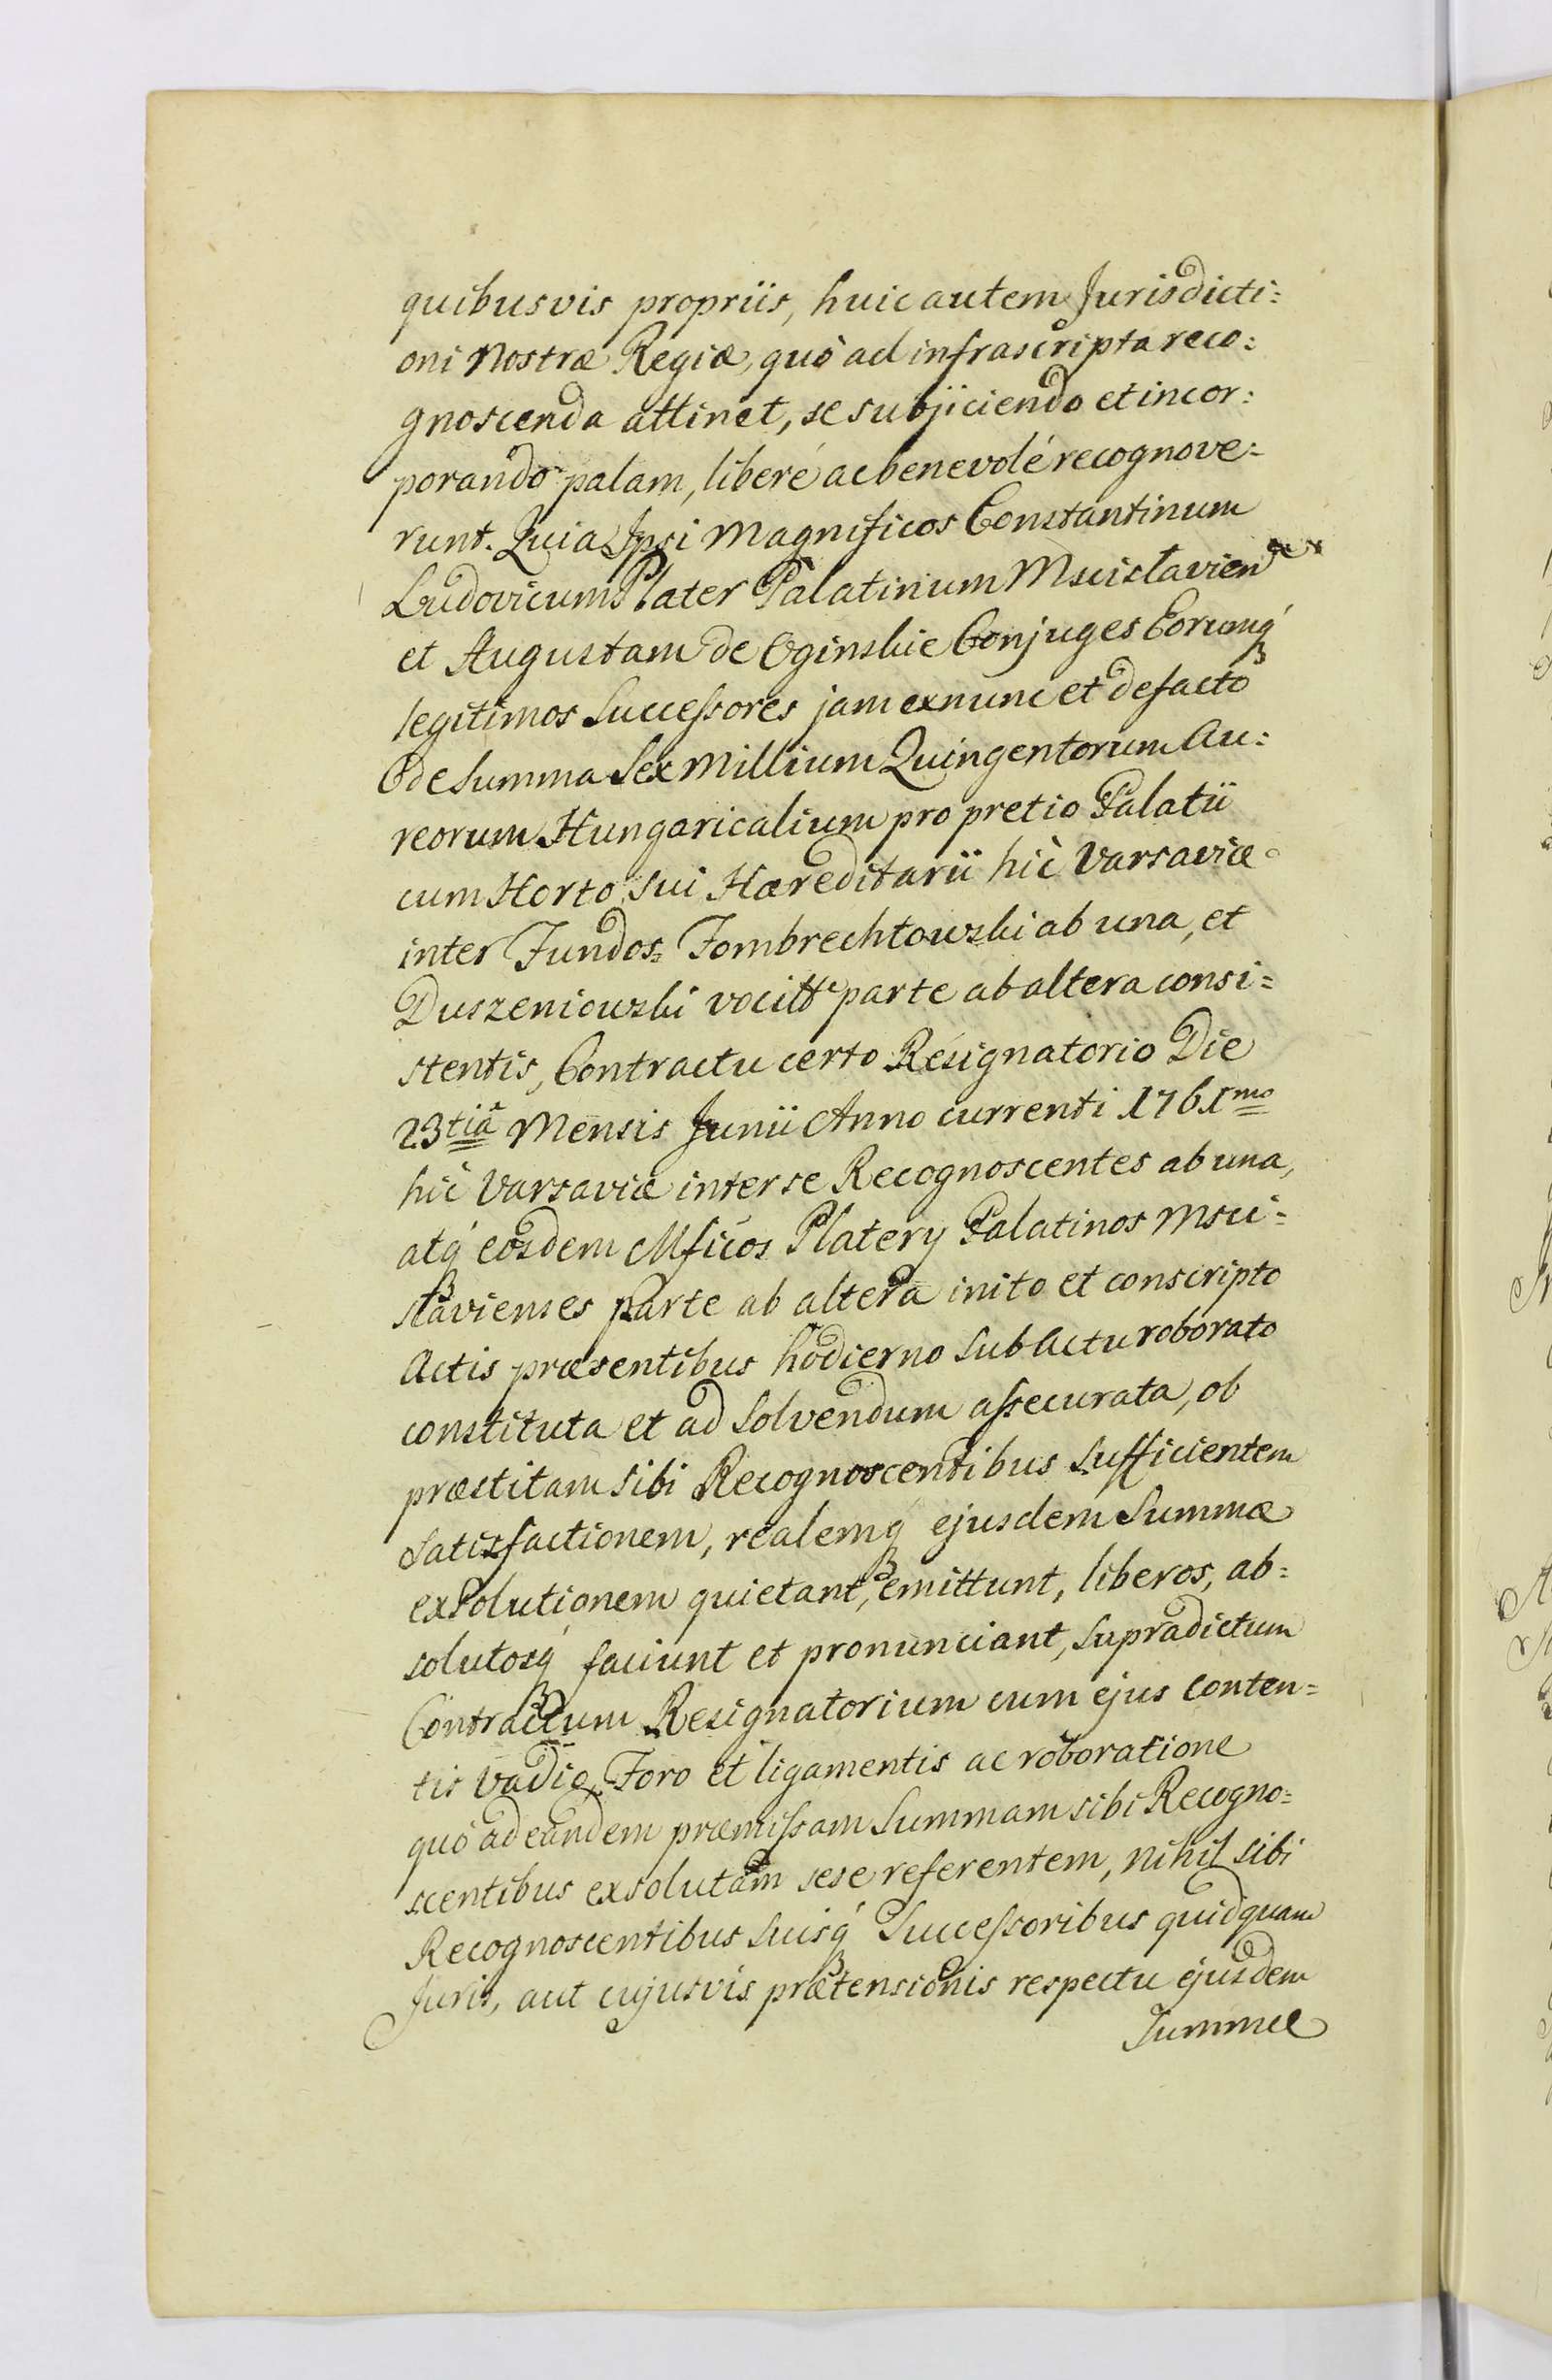 quibusvis propriis, huic autem Jurisdicti=
oni Nostræ Regiæ, quó ad infrascripta reco=
gnoscenda attinet, se subjiciendo et incor=
porando palam, liberé ac benevolé recognove=
runt. Quia Ipsi Magnificos Constantinum
Ludovicum Plater Palatinum Mscislavien
et Augustam de Oginskie Conjuges Eorumq́
legitimos Successores jam ex nunc et de facto
de Summa Sex Millium Quingentorum Au=
reorum Hungaricalium pro pretio Palatii
cum Horto Sui Hæreditarii hic Varsaviæ
inter Fundos Fombrechtowski ab una, et
Duszeniowski vocitt parte ab altera consi=
stentis, Contractu certo Resignatorio Die
23tia Mensis Junii Anno currenti 1761mo
hic Varsaviæ inter se Recognoscentes ab una,
atq́ eosdem Mficos Platery Palatinos Msci=
slavienses parte ab altera inito et conscripto
Actis præsentibus hodierno Sub Actu roborato
constituta et ad Solvendum assecurata, ob
præstitam Sibi Recognoscentibus Sufficientem
Satisfactionem, realemq́ ejusdem Summæ
exsolutionem quietant, emittunt, liberos, ab=
solutosq́ faciunt et pronunciant, Supradictum
Contractum Resignatorium cum ejus Conten=
tis Vadio, Foro et ligamentis ac roboratione
quó ad eandem præmissam Summam sibi Recogno=
scentibus exsolutam sese referentem, nihil sibi
Recognoscentibus Suisq́ Successoribus quidquam
Juris, aut cujusvis prætensionis respectu ejusdem
Summæ